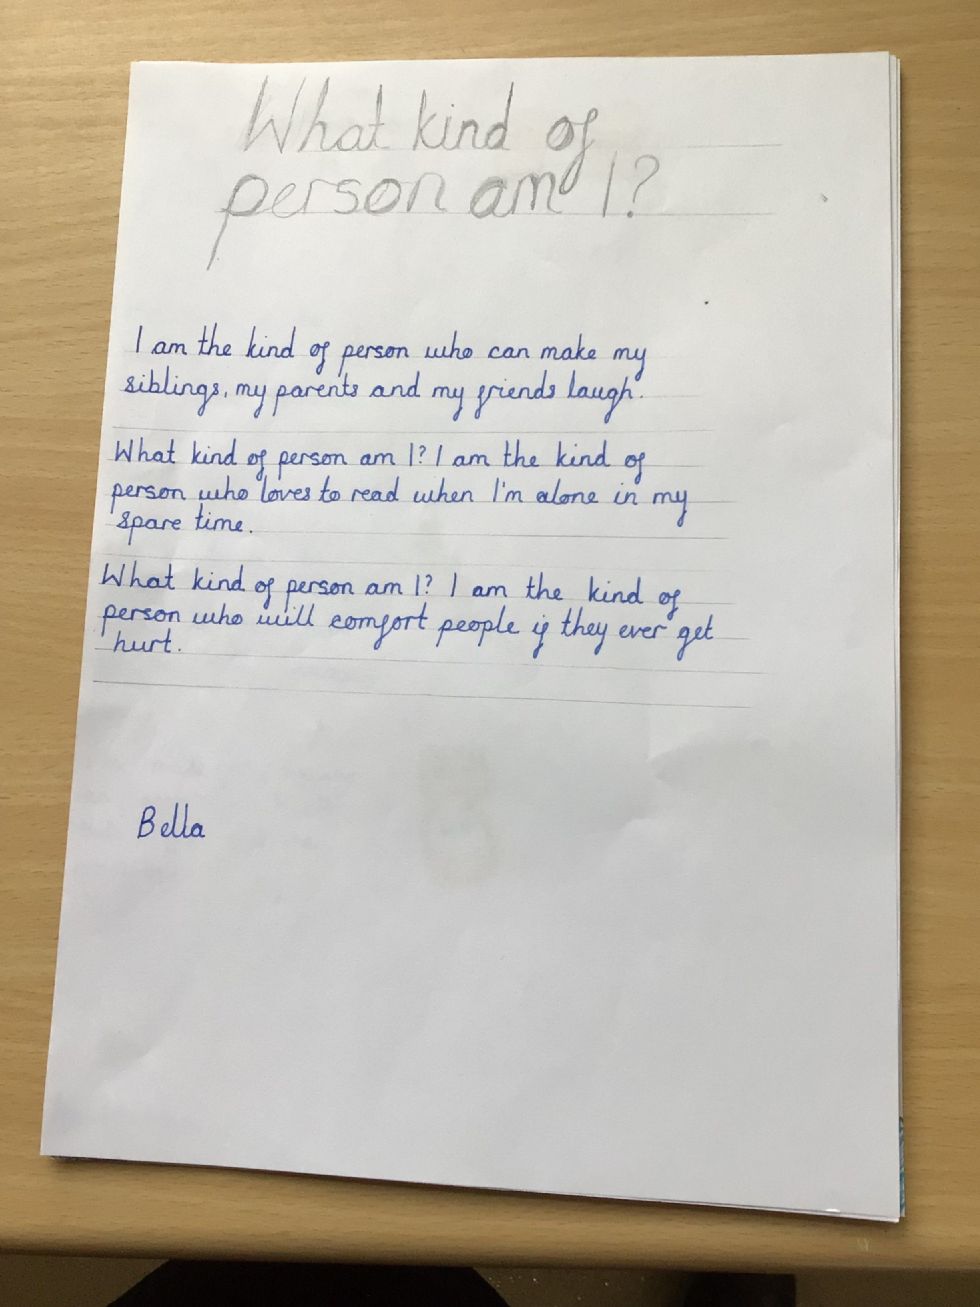 What kind of
person am I?
I am the kind of person who can make my
siblings, my parents and my friends laugh.
What kind of person am I? I am the kind of
person who loves to read when I'm alone in my
spare time.
What kind of person am I? I am the kind of
person who will comfort people if they ever get
hurt.
Bella